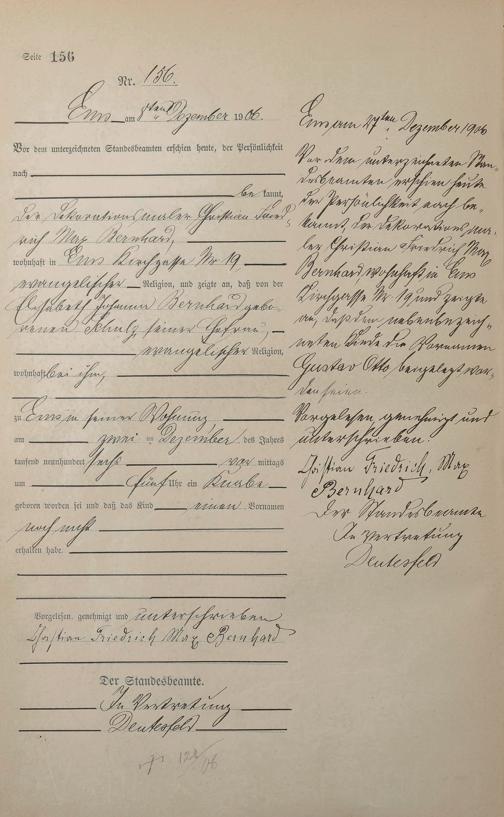 Seite 156
Nr. 156.
Ems am 8ten Dezember 1906.
Vor dem unterzeichneten Standesbeamten erschien heute, der Persönlichkeit
nach
be kannt,
der Dekorationsmaler Christian Fried-
rich Max Bernhard,
wohnhaft in Ems Kirchgasse Nr 19,
evangelischer Religion, und zeigte an, daß von der
Elisabeth Johanna Bernhard gebo-
renen Schulz, seiner Ehefrau,
evangelischer Religion,
wohnhaft bei ihm,
zu Ems in seiner Wohnung
am zwei ten Dezember des Jahres
tausend neunhundert sechs vor mittags
um fünf Uhr ein Knabe
geboren worden sei und daß das Kind einen Vornamen
noch nicht
erhalten habe.
Vorgelesen, genehmigt und unterschrieben
Christian Friedrich Max Bernhard
Der Standesbeamte.
In Vertretung
Deutesfeld
Ems am 27ten Dezember 1906
Vor dem unterzeichneten Stan-
desbeamten erschien heute
der Persönlichkeit nach be-
kannt, der Dekorationsma-
ler Christian Friedrich Max
Bernhard wohnhaft in Ems
Kirchgasse Nr 19 und zeigte
an, daß dem nebenbezeich-
neten Kinde die Vornamen
Gustav Otto beigelegt wor-
den seien.
Vorgelesen, genehmigt und
unterschrieben.
Christian Friedrich, Max
Bernhard
Der Standesbeamte
In Vertretung
Deutesfeld